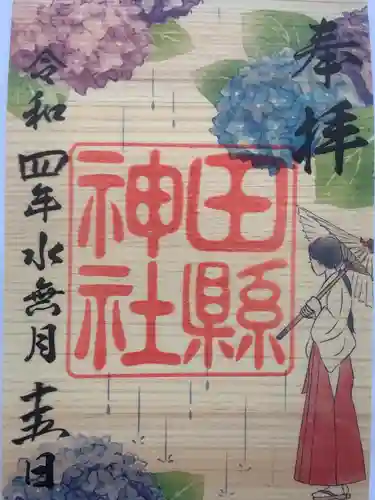 奉拝
田縣
神社
令和四年水無月十五日